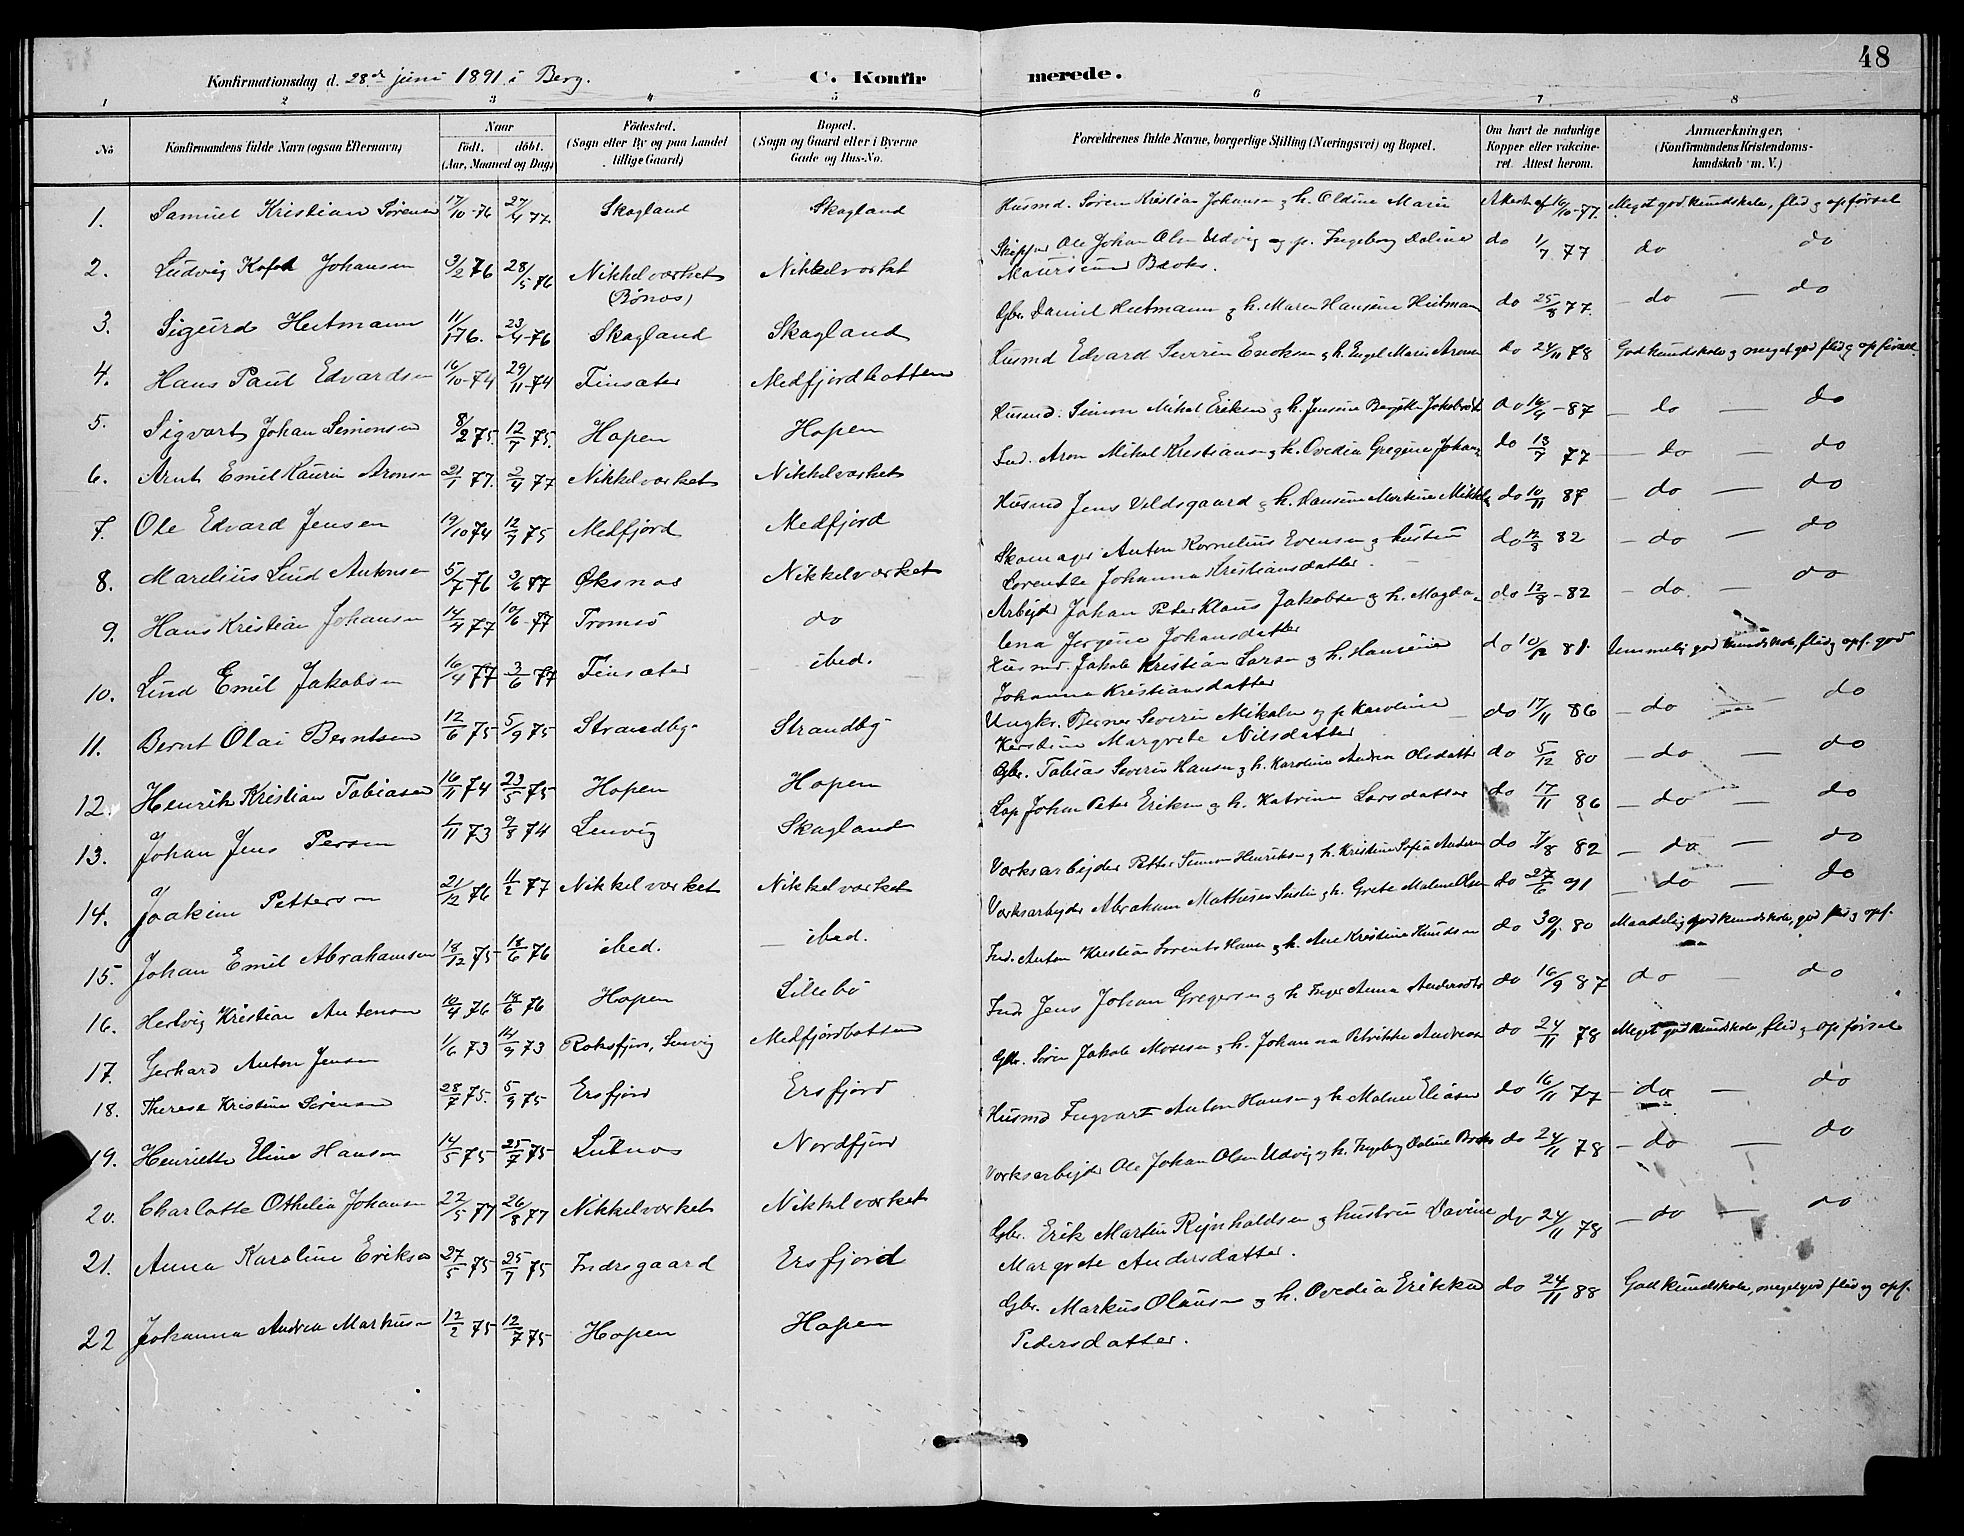 48
Konfirmationsdag d. 28de juni 1891 i Berg. C. Konfirmerede.
1 2 3 4 5 6 7 8
No Konfirmandens fulde Navn (ogsaa Efternavn) Naar født. døbt. (Aar, Maaned og Dag) Fødested. (Sogn eller By og paa Landet tillige Gaard) Bopæl. (Sogn og Gaard eller i Byerne Gade og Hus-No. Forældrenes fulde Navne, borgerlige Stilling (Næringsvei) og Bopæl. Om havt de naturlige Kopper eller vakcineret. Attest herom. Anmærkninger, (Konfirmandens Kristendomskundskab m. V.)
1. Samuel Kristian Sørensen 17/10-76 27/4 77. Skagland Skagland Husmd. Søren Kristian Johansen og h. Oldine Marie Attest af 16/10-77. Meget god kundskab, flid og opførsel
2. Ludvig Kofod Johansen 3/2 76 28/5 76 Nikkelværket (Bønæs) Nikkelværket Skipper Ole Johan Olsen Udvig og p. Ingeborg Doline
Maursund Bcoks. do 1/7 77 do do
3. Sigurd Heitmann 11/1 76. 23/4-76 Skagland Skagland Gbr. Daniel Heitmann og h. Maren Hansine Heitmann do 25/8 77. - do - do
4. Hans Paul Edvardsen 16/10-74 29/11-74 Finsæter Medfjordbotten Husmd Edvard Severin Enoksen og h. Engel Marie Aronsen do 24/11 78 God kundskab og meget god flid og opførsel
5. Sigvart Johan Simonsen 8/2 75. 12/7 75. Hopen Hopen Husmd. Simon Mikal Eriksen og h. Jensine Bergitte Jakobsdt do 16/9-87 - do - do
6. Arnt Emil Laurin Aronsen 21/1 77. 2/4 77 Nikkelværket Nikkelværket Ind. Aron Mikal Kristiansen og h. Ovedia Gregine Johans do 13/7 77 - do - do
7. Ole Edvard Jensen 19/10 74 12/9 75 Medfjord Medfjord Husmd Jens Veldsgaard og h. Hansine Martine Mikkels do 10/11 87 - do - do
8. Marelius Lind Antonsen 5/7-76 3/6 77 Øksnæs Nikkelværket Skomager Anton Kornelius Evensen og hustru
Lorentse Johanna Kristiansdatter. do 12/8 82 - do - do
9. Hans Kristian Johansen 14/4 77 10/6-77 Tromsø do Arbejder Johan Peter Klaus Jakobsen og h. Magda-
lena Jørgine Johansdatter do 12/8-82 - do. - do
10. Lind Emil Jakobsen 16/4 77 3/6 77 Finsæter - ibed. Husmd. Jakob Kristian Larsen og h. Hansine
Johanna Kristiansdatter do 10/12 81. Temmelig god kundskab, flid og opf. god
11. Bernt Olai Berntsen 12/6 75 5/9 75 Strandby Strandby Ungkr. Berner Severin Mikalsen og p. Karoline
Kerstine Margrete Nilsdatter do 17/11 86 - do - do
12. Henrik Kristian Tobiasen 16/11 74 23/5 75 Hopen Hopen Gbr. Tobias Severin Hansen og h. Karoline Andrea Olsdatter do 5/12 80 - do - do
13. Johan Jens Persen 1/11 73 9/8 74 Lenvig Skagland Lap Johan Peter Eriksen og h. Katrine Larsdatter do 17/11 86 - do - do
14. Joakim Pettersen 21/12 76 11/2 77 Nikkelværket Nikkelværket Værksarbejder Petter Simon Henriksen og h. Kristine Sofia Anderse do 7/8 82 - do - do
15. Johan Emil Abrahamsen 18/12 75 18/6 76 ibed. - ibed. Værksarbejder Abraham Mathesen og h. Grete Malene Olsen do 27/6 91 - do - do
16. Hertvig Kristian Antonsen 10/4 76 18/6 76 Hopen Lillebø Ind. Anton Kristian Lorents Hansen og h. Ane Kristine Knudsen do 30/11 80 Maadelig god kundskab, god flid og opf.
17. Gerhard Anton Jensen 1/6 73 14/9 73 Roksfjor, Lenvig Medfjordbotten Ind Jens Johan Gregersen og h Inger Anna Andersdtr do 16/9 87 do - do
18. Therese Kristine Sørensen 28/7 75. 5/9 75 Ersfjord Ersfjord Gbr. Søren Jakob Mosesen og h. Johanna Petrikke Andreasen do 24/11 78 Meget god kundskab, flid og opførsel
19. Henriette Eline Hansen 14/5 75 25/7 75 Lutnæs Nordfjord Husmd Ingvart Anton Hansen og h Malene Eliasen do 16/11 77 - do - do
20. Charlotte Othelia Johansen 22/5 77 26/8 77 Nikkelværket Nikkelværket Værksarbejder Ole Johan Olsen Udvig og h. Ingeborg Doline Bcoks do 24/11 78 - do - do
21. Anna Karoline Eriksen 27/5 75 25/7 75 Indregaard Ersfjord Gbr. Erik Martin Rejnholdsen og hustru Davine
Margrete Andersdatter. do 24/11 78 - do - do
22 Johanna Andrea Markusen 12/2 75 12/7 75 Hopen Hopen Gbr. Markus Olausen og h. Ovedia Erikka
Pedersdatter. do 24/11 88 God kundskab, meget god flid og opf.